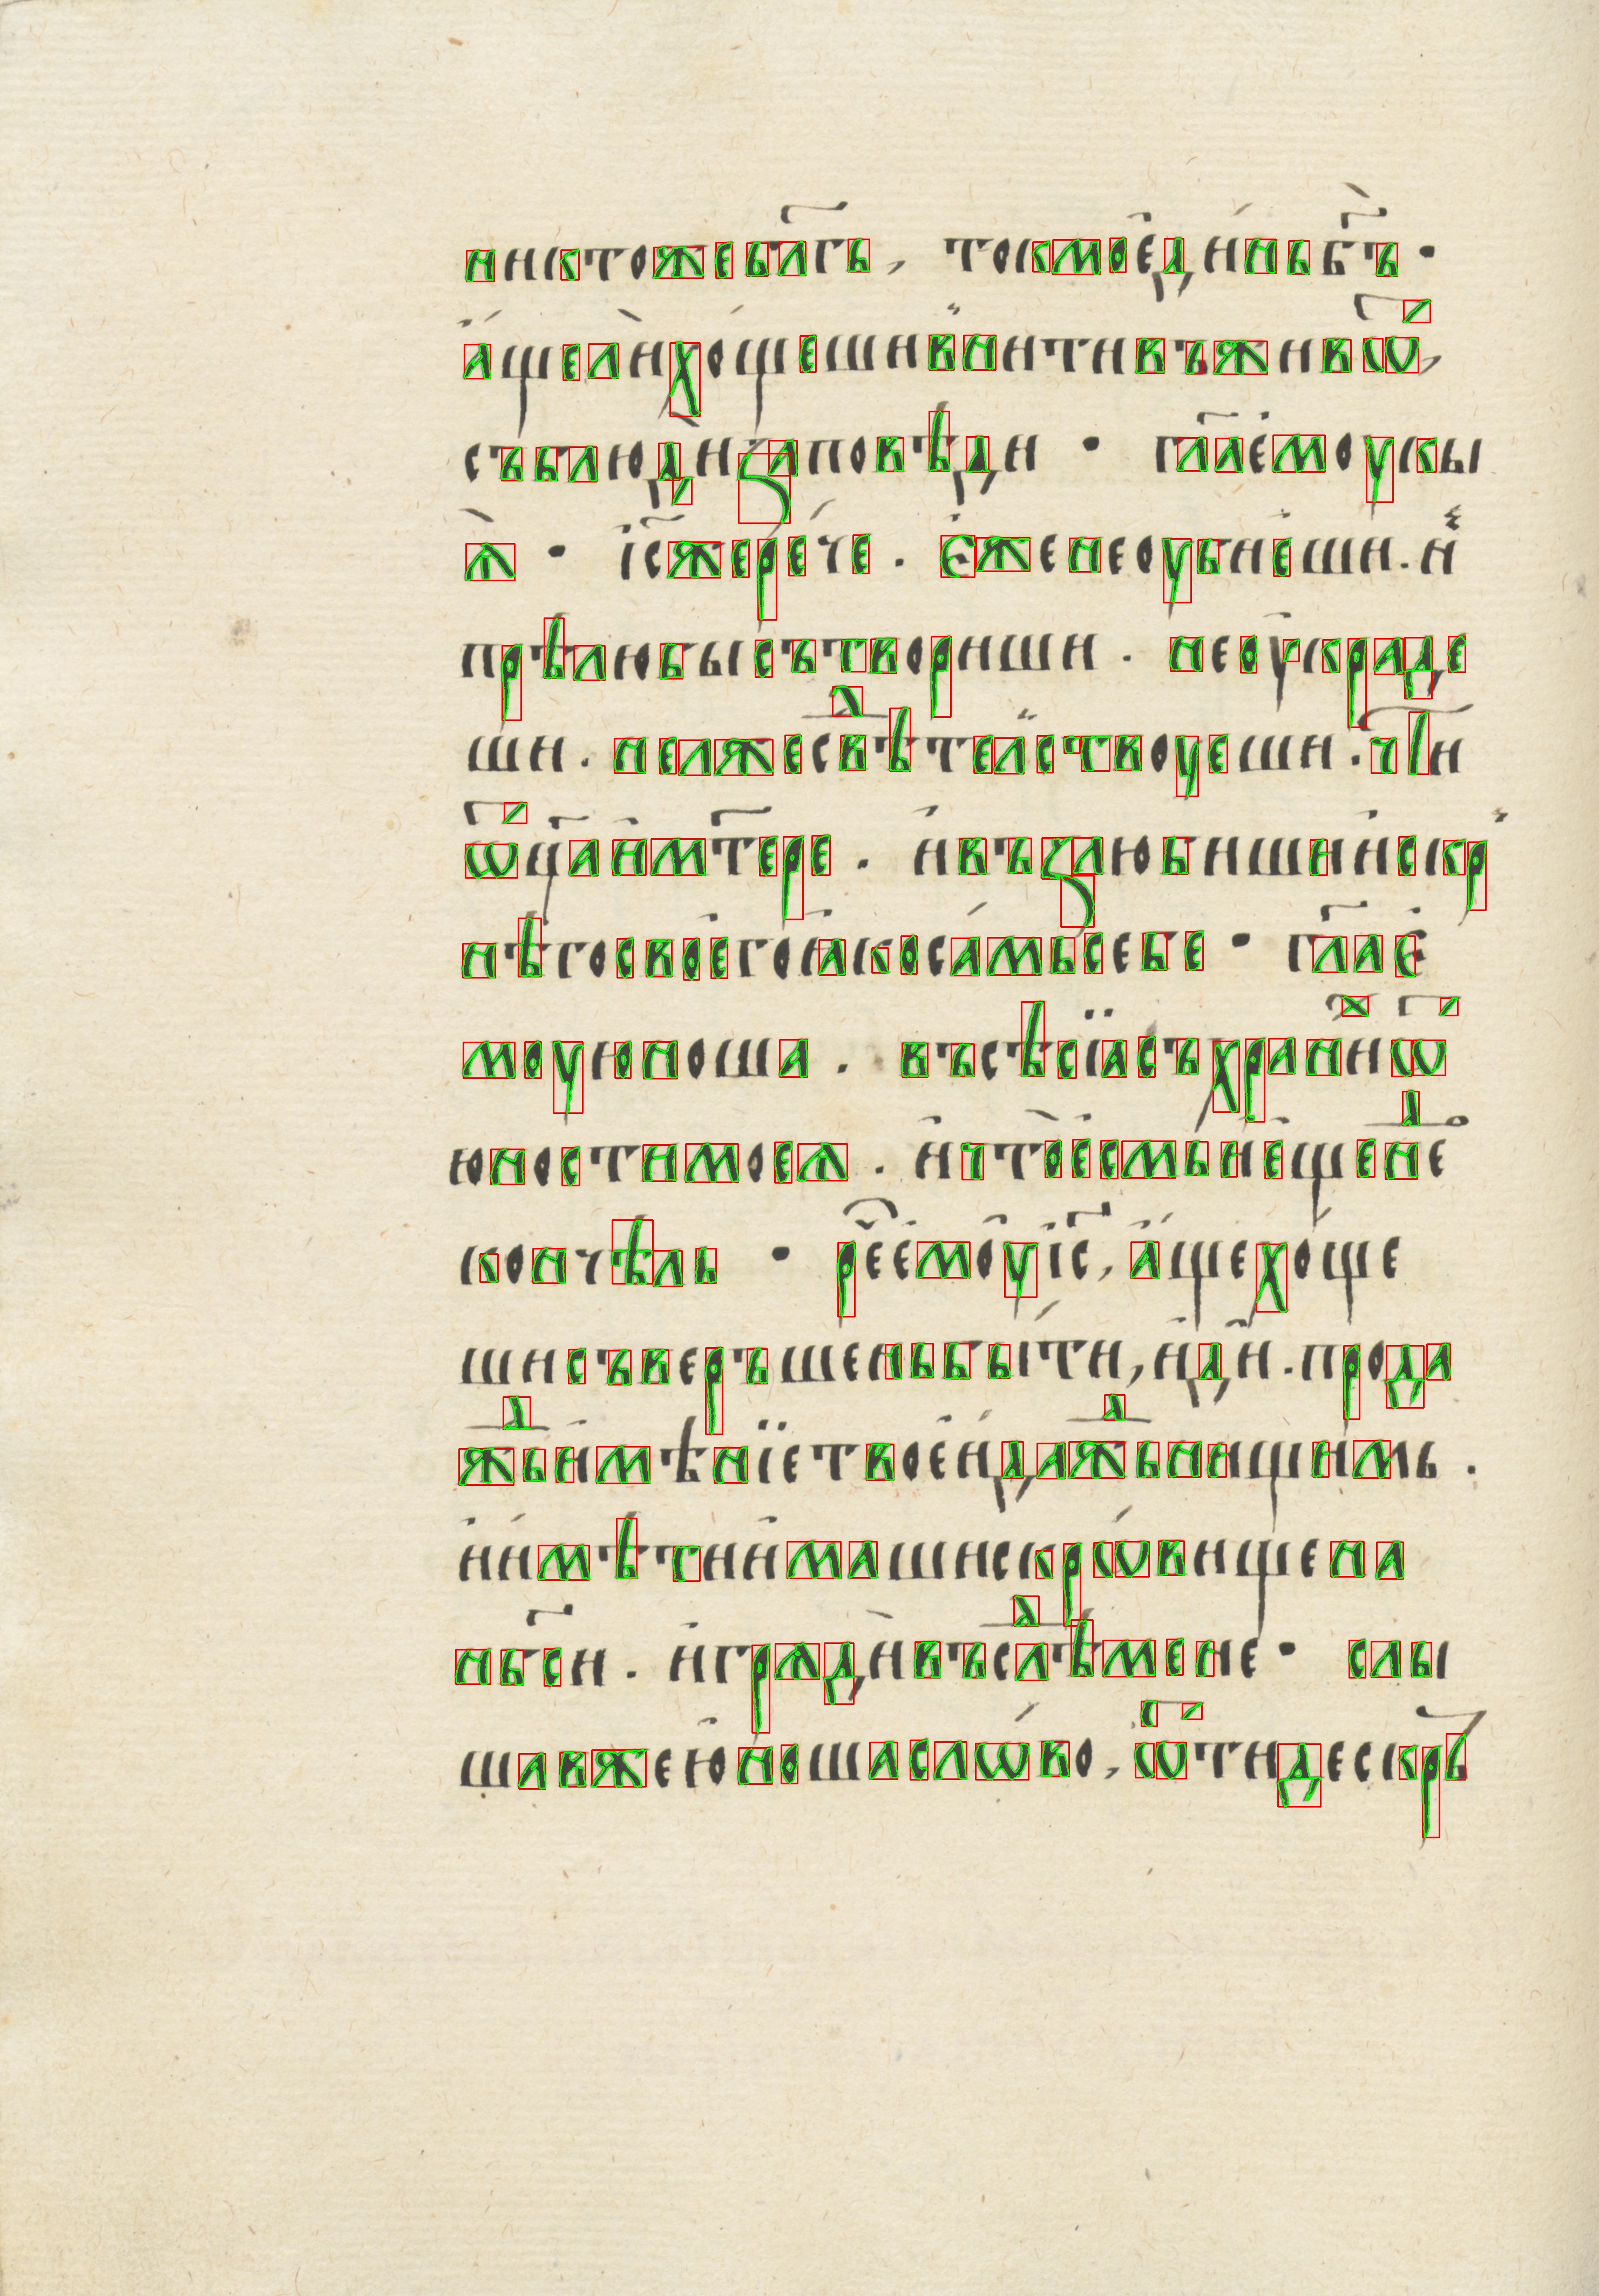 никтоже бл҃гъ, токмо е҆ди́нь бг҃ъ ·
а҆́ще лѝ хо́щеши вни́ти въ жи́вѡⷮ,
съблюдѝ за́повѣди · гл҃а е҆моу кы
ѧ̀ · і҆с҃ же ре́че . є҆́же не оубие҆ши . и҆̀
прѣлюбы сътвори́ши . не оу҆краде
ши . не лжесвѣⷣтел̈ствоуеши . чⷭ҇ти
ѡⷮц҃а и҆ мт҃ере . и҆́ възлюбиши и҆скр
нѣго свое҆го ꙗ҆ко са́мь себе · гл҃а є҆
моу юноша . въсѣ сїа съхранⷯи ѿ
юности моеѧ . и҆ что̀ е҆смь не҆щеⷣне
кончѣль · ре҃ е҆мо̑у і҆с҃, а҆́ще хо́ще
ши съвершень бы́ти, и҆дѝ . прода
жⷣь и҆мѣнїе твое҆ и҆́ даⷣжь нищимь .
и҆ и҆́мѣти и҆маши скро́вище на
нб҃си . и҆ грѧдѝ въ слѣⷣ мене · слы
шав же ю҆ноша сло́во, ѿтиде скрь